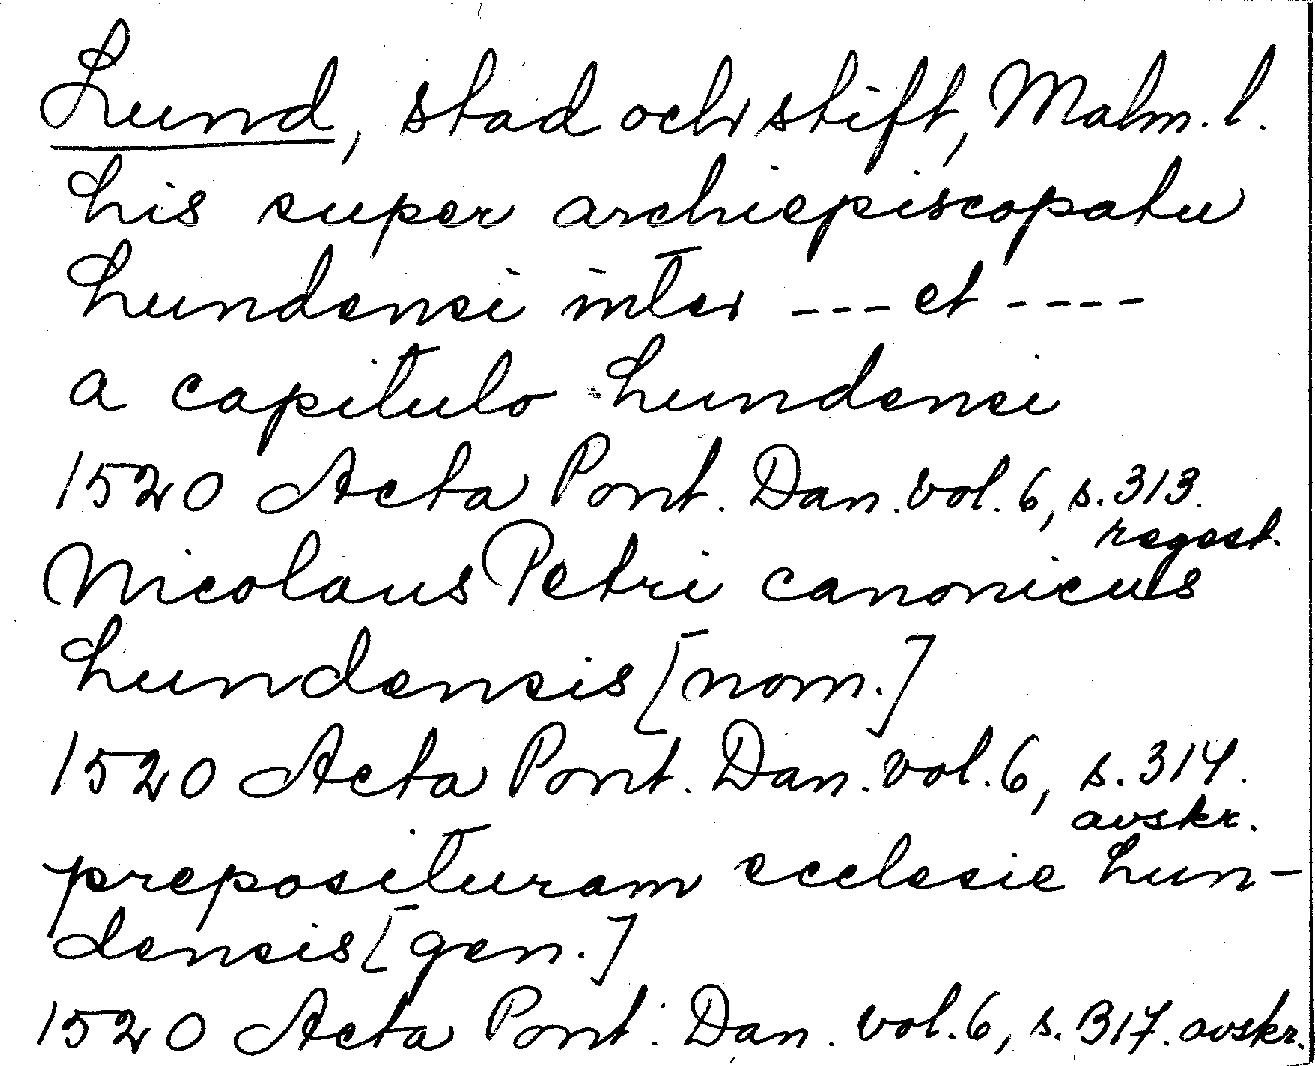 Lund, stad och stift, Malm. l.
lis super archiepiscopatu
lundensi inter --- et ----
a capitulo lundensi
1520 Acta Pont. Dan. vol. 6, s. 313.
regest.
Nicolaus Petri canonicus
lundensis [nom.]
1520 Acta Pont. Dan. vol. 6, s. 314.
avskr.
preposituram ecclesie lun-
densis [gen.]
1520 Acta Pont. Dan. vol. 6, s. 317. avskr.